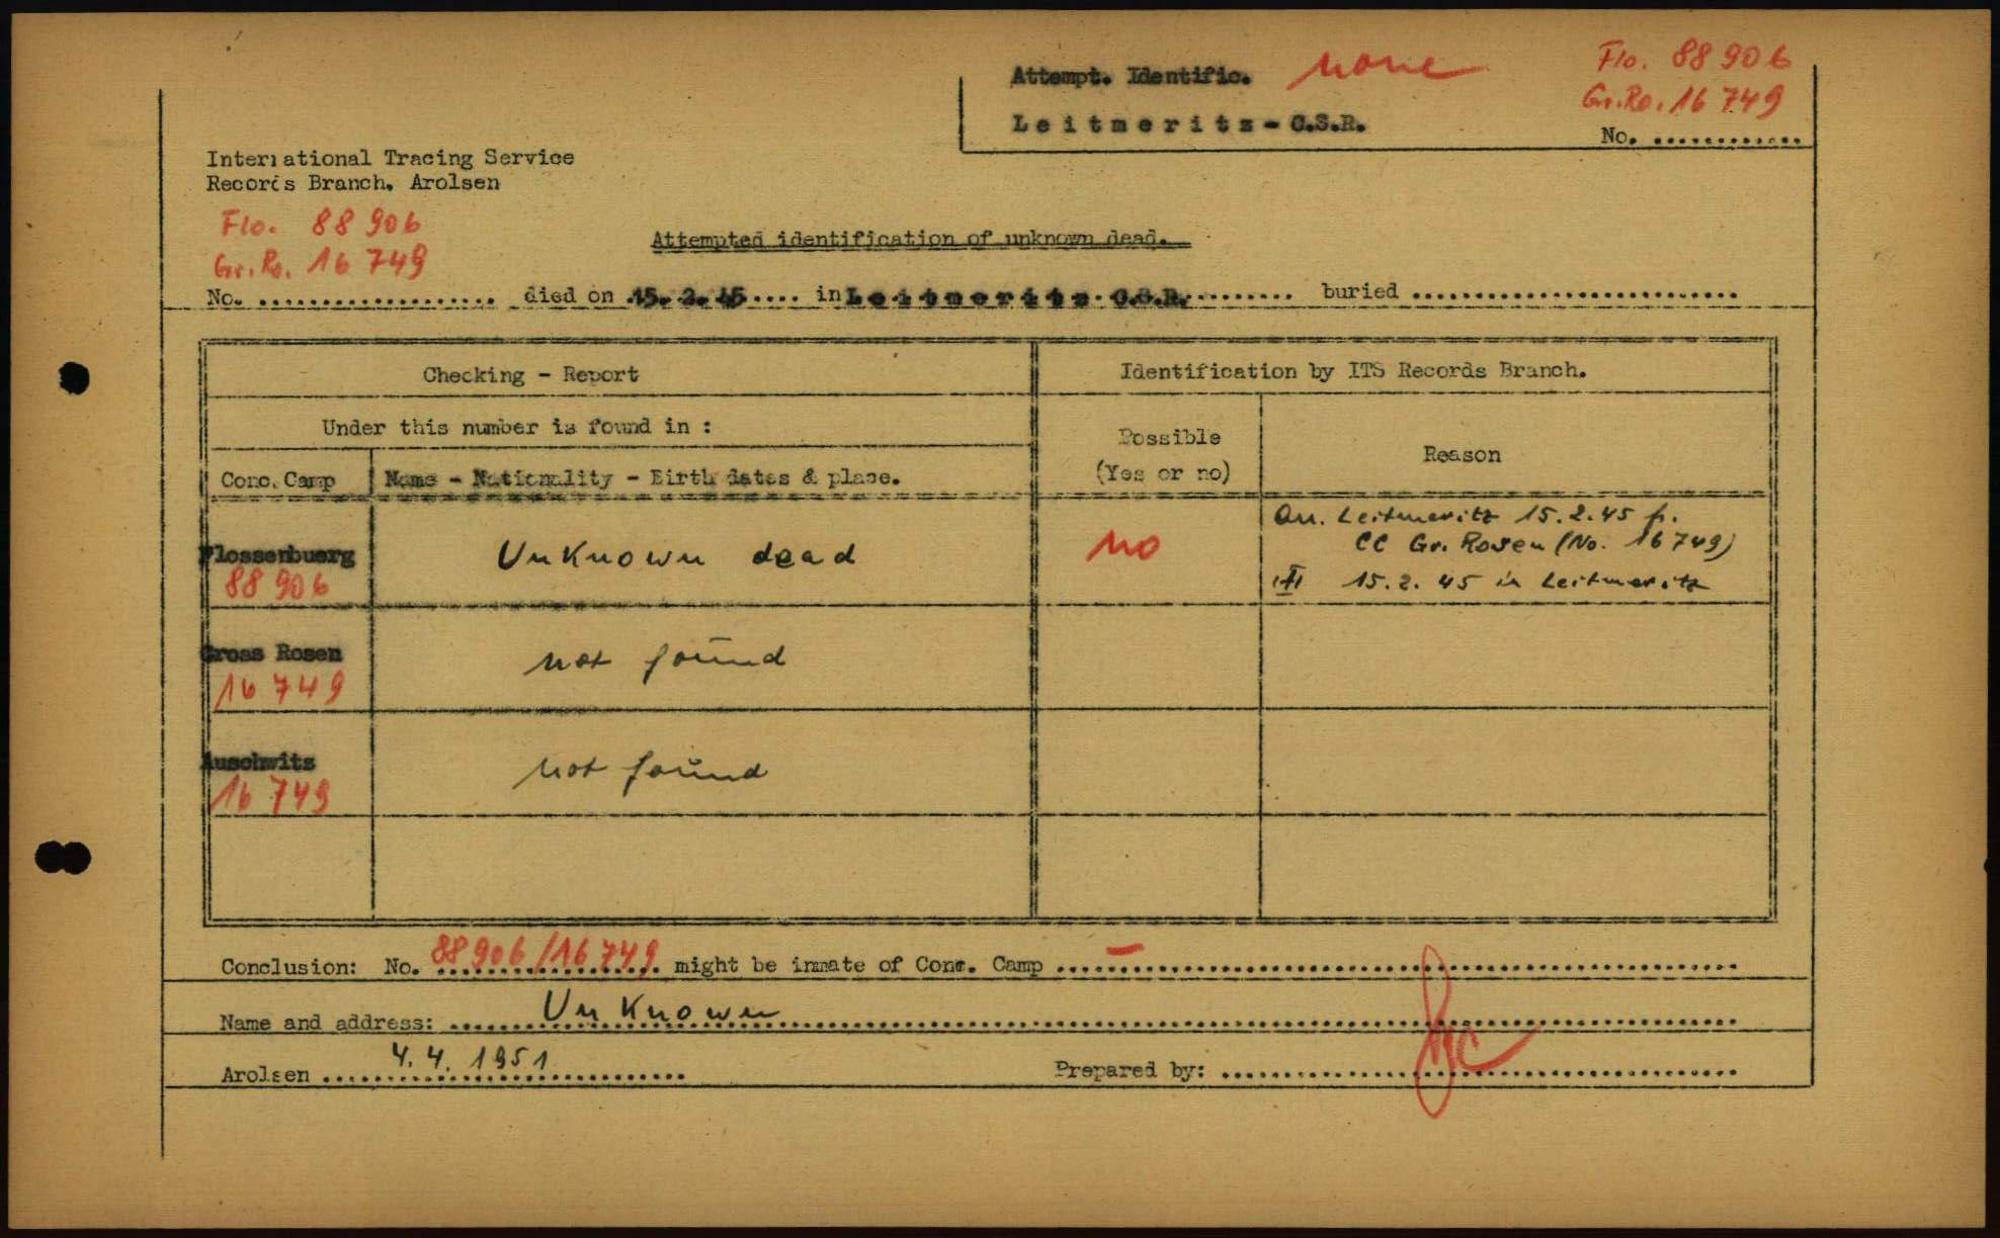 Attempt. Identific. none
Flo. 88 906
Gr.Ro. 16 749
Leitmeritz - C.S.R.
No. ............
International Tracing Service
Records Branch, Arolsen
Flo. 88 906
Gr.Ro. 16 749
Attempted identification of unknown dead.
No. .................. died on .15. 2. 45.... in Leitmeritz C.S.R. ........ buried .........................
Checking - Report
Identification by ITS Records Branch.
Under this number is found in :
Possible
(Yes or no)
Reason
Conc. Camp
Name - Nationality - Birth dates & place.
Flossenbuerg
88 906
UnKnown dead
no
Arr. Leitmeritz 15.2.45 f.
CC Gr. Rosen (No. 16 749)
15.2.45 in Leitmeritz
Gross Rosen
16 749
not found
Auschwitz
16 749
not found
Conclusion: No. 88 906/16 749 might be inmate of Conc. Camp ..... – .....
Name and address: ...... UnKnown ......
Arolsen .... 4. 4. 1951 ....
Prepared by: ..........